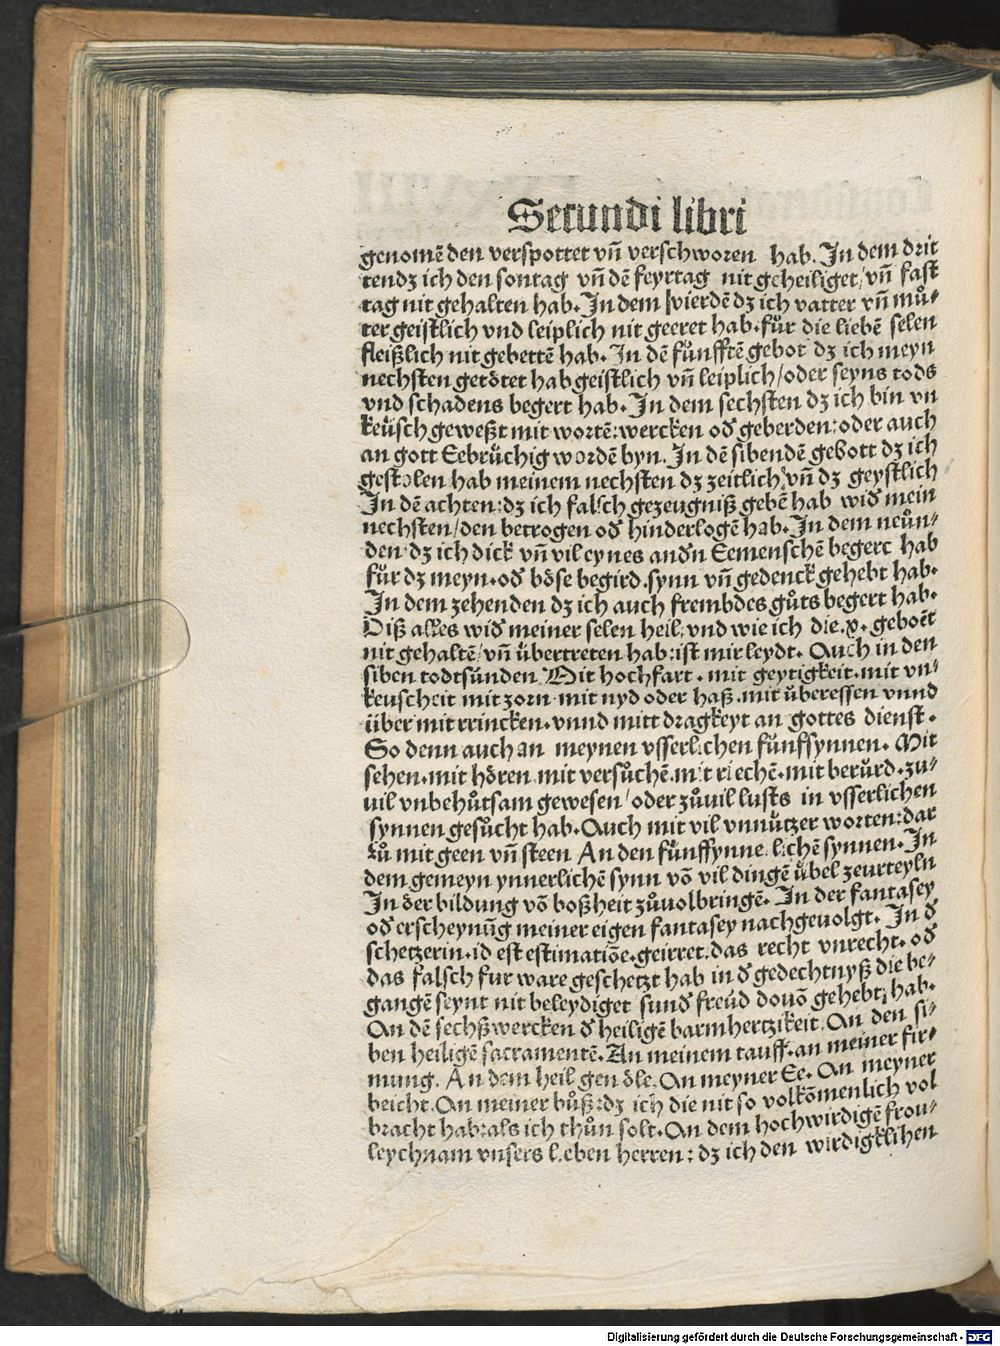 Secundi libri
genomẽ den verspottet vñ verschworen hab. In dem drit
tendz ich den sontag vñ dẽ feyrtag nit geheiliget/ vñ fast
tag nit gehalten hab. In dem vierdẽ dz ich vatter vñ mů-
ter geistlich vnd leiplich nit geeret hab. für die liebẽ selen
fleißlich nit gebettẽ hab. In dẽ fünfftẽ gebot dz ich meyn
nechsten getötet hab geistlich vñ leiplich/oder seyns tods
vnd schadens begert hab. In dem sechsten dz ich bin vn
keüsch geweßt mit wortẽ: wercken oď geberden: oder auch
an gott Eebrüchig wordẽ byn. In dẽ sibendẽ gebott dz ich
gestolen hab meinem nechsten dz zeitlich/ vñ dz geystlich
In dẽ achten: dz ich falsch gezeugniß gebẽ hab wiď mein
nechsten/den betrogen oď hinderlogẽ hab. In dem neün-
den dz ich dick vñ vil eynes anďn Eemenschẽ begert hab
für dz meyn. oď böse begird. synn vñ gedenck gehebt hab.
In dem zehenden dz ich auch frembdes gůts begert hab.
Diß alles wiď meiner selen heil: vnd wie ich die .x. geboẽt
nit gehaltẽ/ vñ übertreten hab: ist mir leydt. Auch in den
siben todtsünden Mit hochfart. mit geytigkeit. mit vn-
keuscheit mit zorn mit nyd oder haß. mit überessen vnnd
über mit trincken. vnnd mitt dragkeyt an gottes dienst.
So denn auch an meynen vsserlichen fünfsynnen. Mit
sehen. mit hören mit versůchẽ. mit riechẽ. mit berürd. zu-
uil vnbehůtsam gewesen/ oder zůuil lusts in vsserlichen
synnen gesůcht hab. Auch mit vil vnnützer worten: dar
zů mit geen vñ steen An den fünff ynnerlichẽ synnen. In
dem gemeyn ynnerlichẽ synn võ vil dingẽ übel zeurteyln
In der bildung võ boßheit zůuolbringẽ. In der fantasey
oď erscheynũg meiner eigen fantasey nachgeuolgt. In ď
schetzerin. id est estimatiõe. geirret. das recht vnrecht. oď
das falsch fur ware geschetzt hab in ď gedechtnyß die be-
gangẽ seynt nit beleydiget sunď freüd douõ gehebt hab.
An dẽ sechß wercken ď heiligẽ barmhertzikeit. An den si-
ben heiligẽ sacramentẽ. An meinem tauff. an meiner fir-
mung. An dem heiligen öle. An meyner Ee. An meyner
beicht. An meiner bůß: dz ich die nit so volkõmenlich vol
bracht hab: als ich thůn solt. An dem hochwirdigẽ frou-
leychnam vnsers lieben herren: dz ich den wirdigklihen
Digitalisierung gefördert durch die Deutsche Forschungsgemeinschaft - DFG